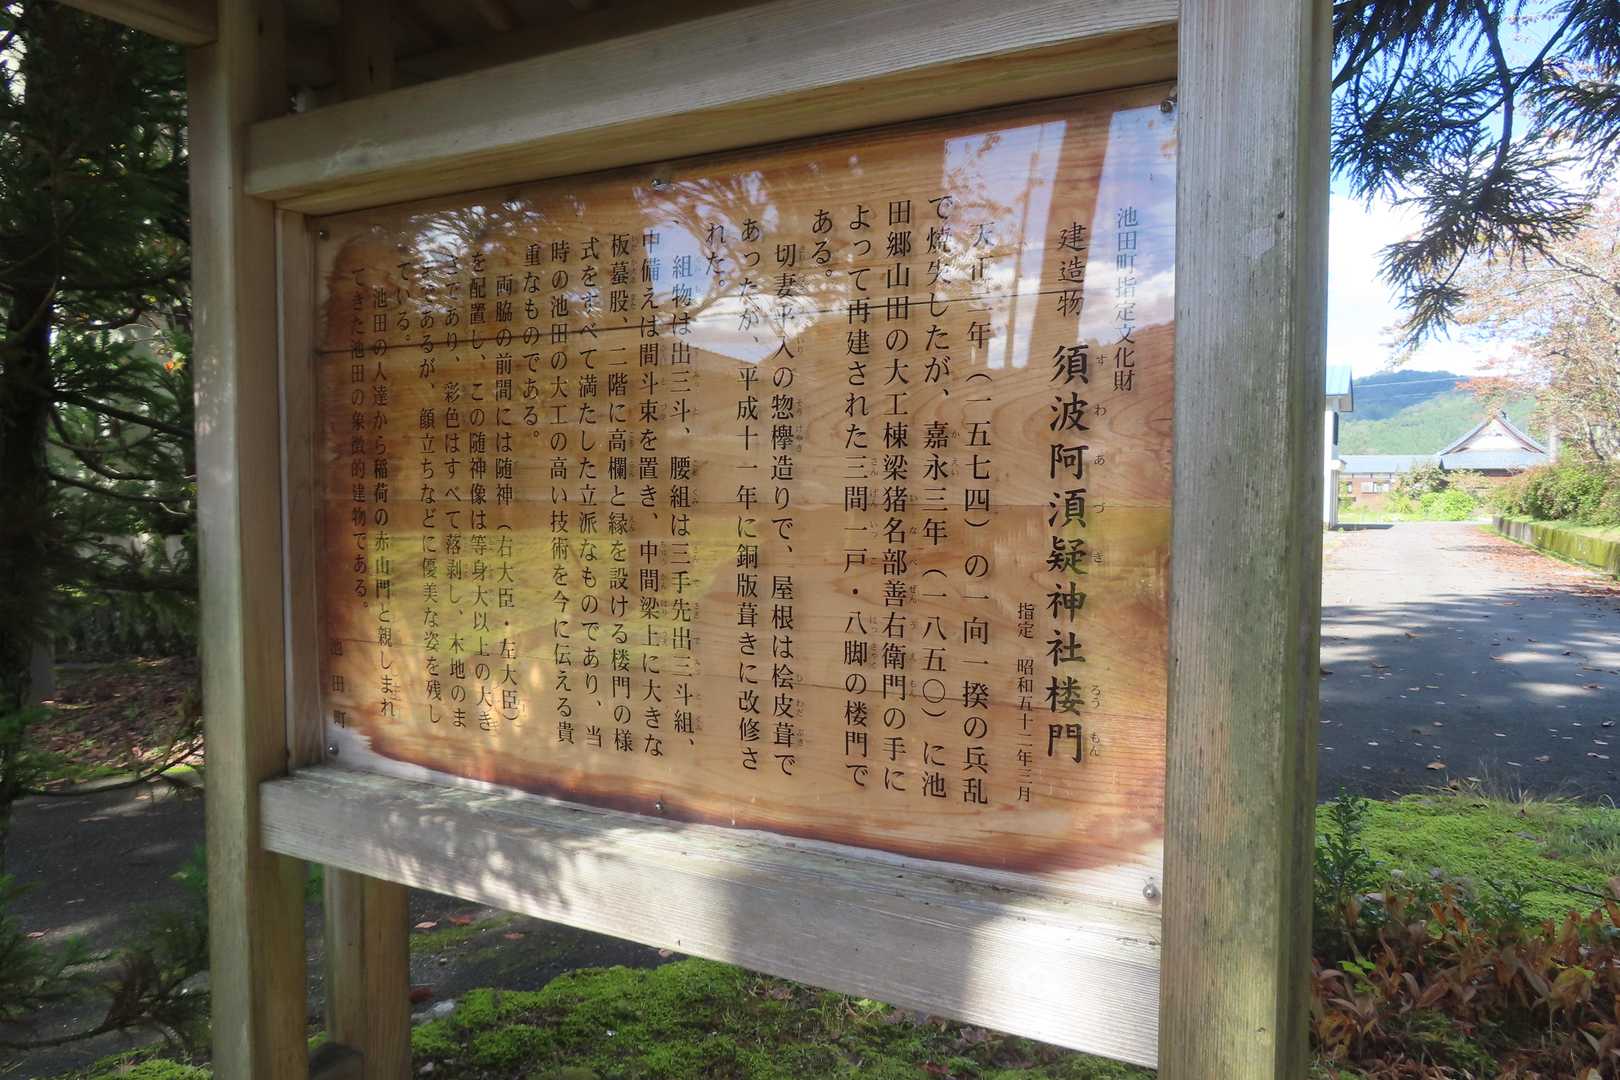 池田町指定文化財
建造物 須波阿湏疑神社楼門
すわあづぎ ろうもん
指定 昭和五十二年三月
天正二年（一五七四）の一向一揆の兵乱
で焼失したが、嘉永三年（一八五〇）に池
かえい
田郷山田の大工棟梁猪名部善右衛門の手に
いなべぜんうえもん
よって再建された三間一戸・八脚の楼門で
さんげんいっこ はっきゃく
ある。
切妻平入の惣欅造りで、屋根は桧皮葺で
いり そうけやき ひわだぶき
あったが、平成十一年に銅版葺きに改修さ
れた。
組物は出三斗、腰組は三手先出三斗組、
中備えは間斗束を置き、中間梁上に大きな
板蟇股、二階に高欄と縁を設ける楼門の様
式をすべて満たした立派なものであり、当
時の池田の大工の高い技術を今に伝える貴
重なものである。
両脇の前間には随神（右大臣・左大臣）
を配置し、この随神像は等身大以上の大き
さであり、彩色はすべて落剥し、木地のま
まであるが、顔立ちなどに優美な姿を残し
ている。
池田の人達から稲荷の赤山門と親しまれ
てきた池田の象徴的建物である。
池田町